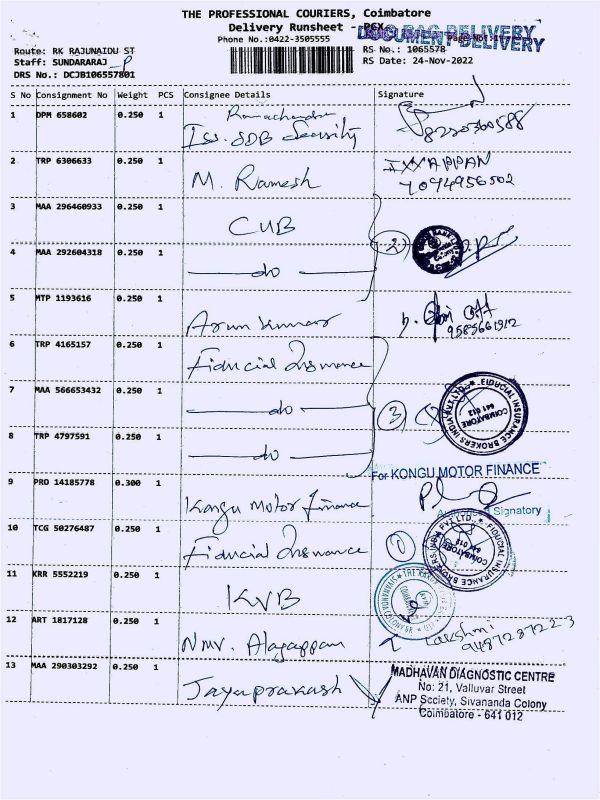 THE PROFESSIONAL COURIERS, Coimbatore
Delivery Runsheet - PCX
DOCUMENT DELIVERY
Phone No.:0422-3505555
Route: RK RAJUNAIDU ST
RS No.: 1065578
Staff: SUNDARARAJ
RS Date: 24-Nov-2022
DRS No.: DCJB106557801
S No Consignment No Weight PCS Consignee Details Signature
1 DPM 658602 0.250 1 Ramachandra
SDB Security 8220360588
2 TRP 6306633 0.250 1 M. Ramesh IYYAPPAN
7094956502
3 MAA 296460933 0.250 1 CUB
4 MAA 292604318 0.250 1 do 2
5 MTP 1193616 0.250 1 Arun kumar
9585661912
6 TRP 4165157 0.250 1 Fiducial Insurance
7 MAA 566653432 0.250 1 do 3
FIDUCIAL INSURANCE BROKERS INDIA PVT. LTD.
COIMBATORE
641 012
8 TRP 4797591 0.250 1 do
For KONGU MOTOR FINANCE
9 PRO 14185778 0.300 1 Kongu Motor Finance
Signatory
10 TCG 50276487 0.250 1 Fiducial Insurance 1
FIDUCIAL INSURANCE BROKERS INDIA PVT. LTD.
COIMBATORE
11 KRR 5552219 0.250 1 KVB
12 ART 1817128 0.250 1 Nmv. Alagappan Lakshmi
9487287223
13 MAA 290303292 0.250 1 Jayaprakash
MADHAVAN DIAGNOSTIC CENTRE
No: 21, Valluvar Street
ANP Society, Sivananda Colony
Coimbatore - 641 012